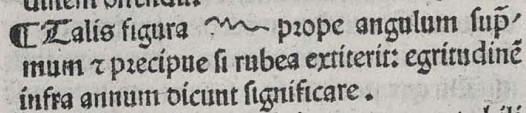 ¶ Talis figura prope angulum sup̄-
mum ⁊ precipue ſi rubea extiterit: egritudinē
infra annum dicunt ſignificare.